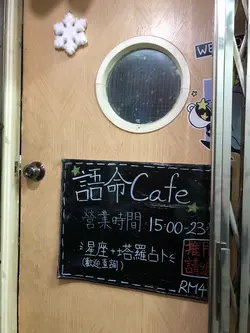 WE
語命Cafe
營業時間:15:00-23
星座++塔羅占卜
(歡迎查詢)
推門
請
RM4